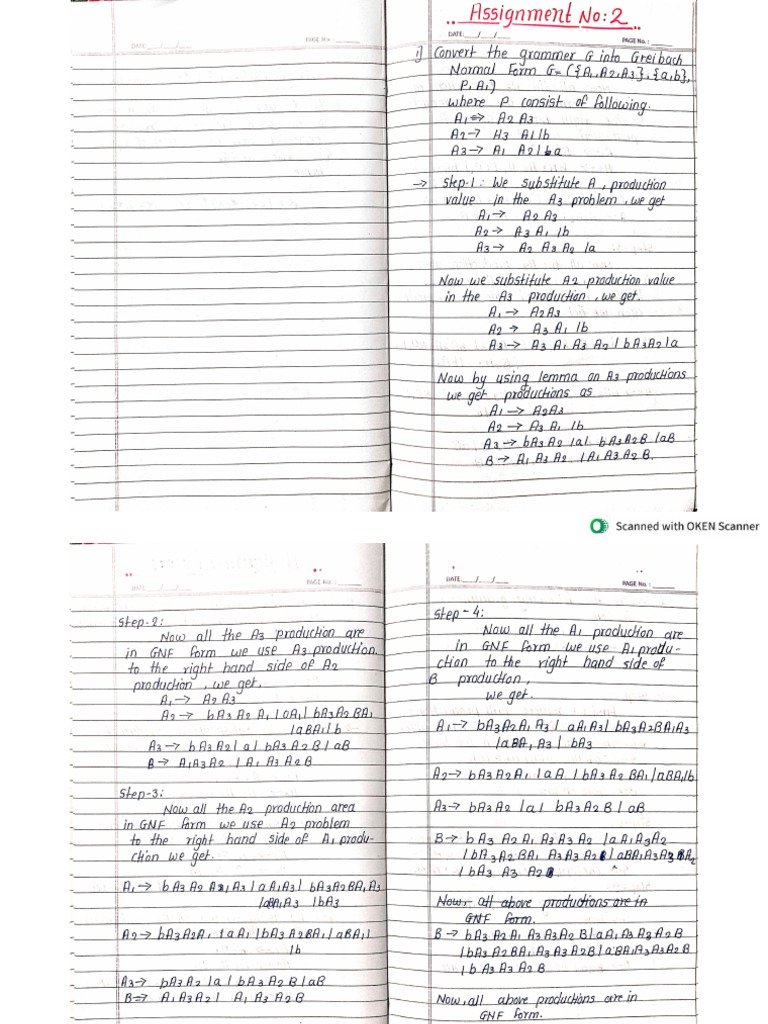 Assignment No:2
DATE: __/__/__
PAGE No.:
DATE: __/__/__
PAGE No.:
1) Convert the grammer G into Greibach
Normal Form G=({A1,A2,A3},{a,b},
P,A1)
where P consist of following.
A1⇒ A2 A3
A2→ A3 A1 | b
A3→ A1 A2 | a
→ Step-1: We substitute A1 production
value in the A3 problem, we get
A1→ A2 A3
A2→ A3 A1 | b
A3→ A2 A3 A2 | a
Now we substitute A2 production value
in the A3 production, we get.
A1→ A2A3
A2→ A3 A1 | b
A3→ A3 A1 A3 A2 | bA3A2 | a
Now by using lemma on A3 productions
we get productions as
A1→ A2A3
A2→ A3 A1 | b
A3→ bA3 A2 | a | bA3A2B | aB
B→ A1 A3 A2 | A1 A3 A2 B,
Scanned with OKEN Scanner
DATE: __/__/__
PAGE No.:
Step-2:
Now all the A3 production are
in GNF form we use A3 production
to the right hand side of A2
production, we get.
A1→ A2 A3
A2→ bA3 A2 A1 | aA1 | bA3A2 BA1
| aBA1 | b
A3→ bA3 A2 | a | bA3 A2 B | aB
B→ A1A3 A2 | A1 A3 A2 B
Step-3:
Now all the A2 production area
in GNF form we use A2 problem
to the right hand side of A1 produ-
ction we get.
A1→ bA3 A2 A1 A3 | aA1A3 | bA3A2BA1A3
| aBA1A3 | bA3
A2→ bA3A2A1 | aA1 | bA3A2BA1 | aBA1 |
| b
A3→ bA3A2 | a | bA3A2B | aB
B⇒ A1A3A2 | A1 A3 A2 B
DATE: __/__/__
PAGE No.:
Step-4:
Now all the A1 production are
in GNF form we use A1 produ-
ction to the right hand side of
B production,
we get.
A1→ bA3A2A1A3 | aA1A3 | bA3A2BA1A3
| aBA1A3 | bA3
A2→ bA3A2A1 | aA | bA3A2 BA1 | aBA1 | b
A3→ bA3A2 | a | bA3A2B | aB
B→ bA3 A2 A1 A3A3A2 | aA1A3A2
| bA3A2BA1 A3A3A2 | aBA1A3A3A2
| bA3 A3 A2
Now, all above productions are in
GNF form.
B→ bA3A2A1 A3A3A2B | aA1A3A3A2B
| bA3A2BA1 A3A3A2B | aBA1A3A3A2B
| bA3A3A2B
Now, all above productions are in
GNF form.